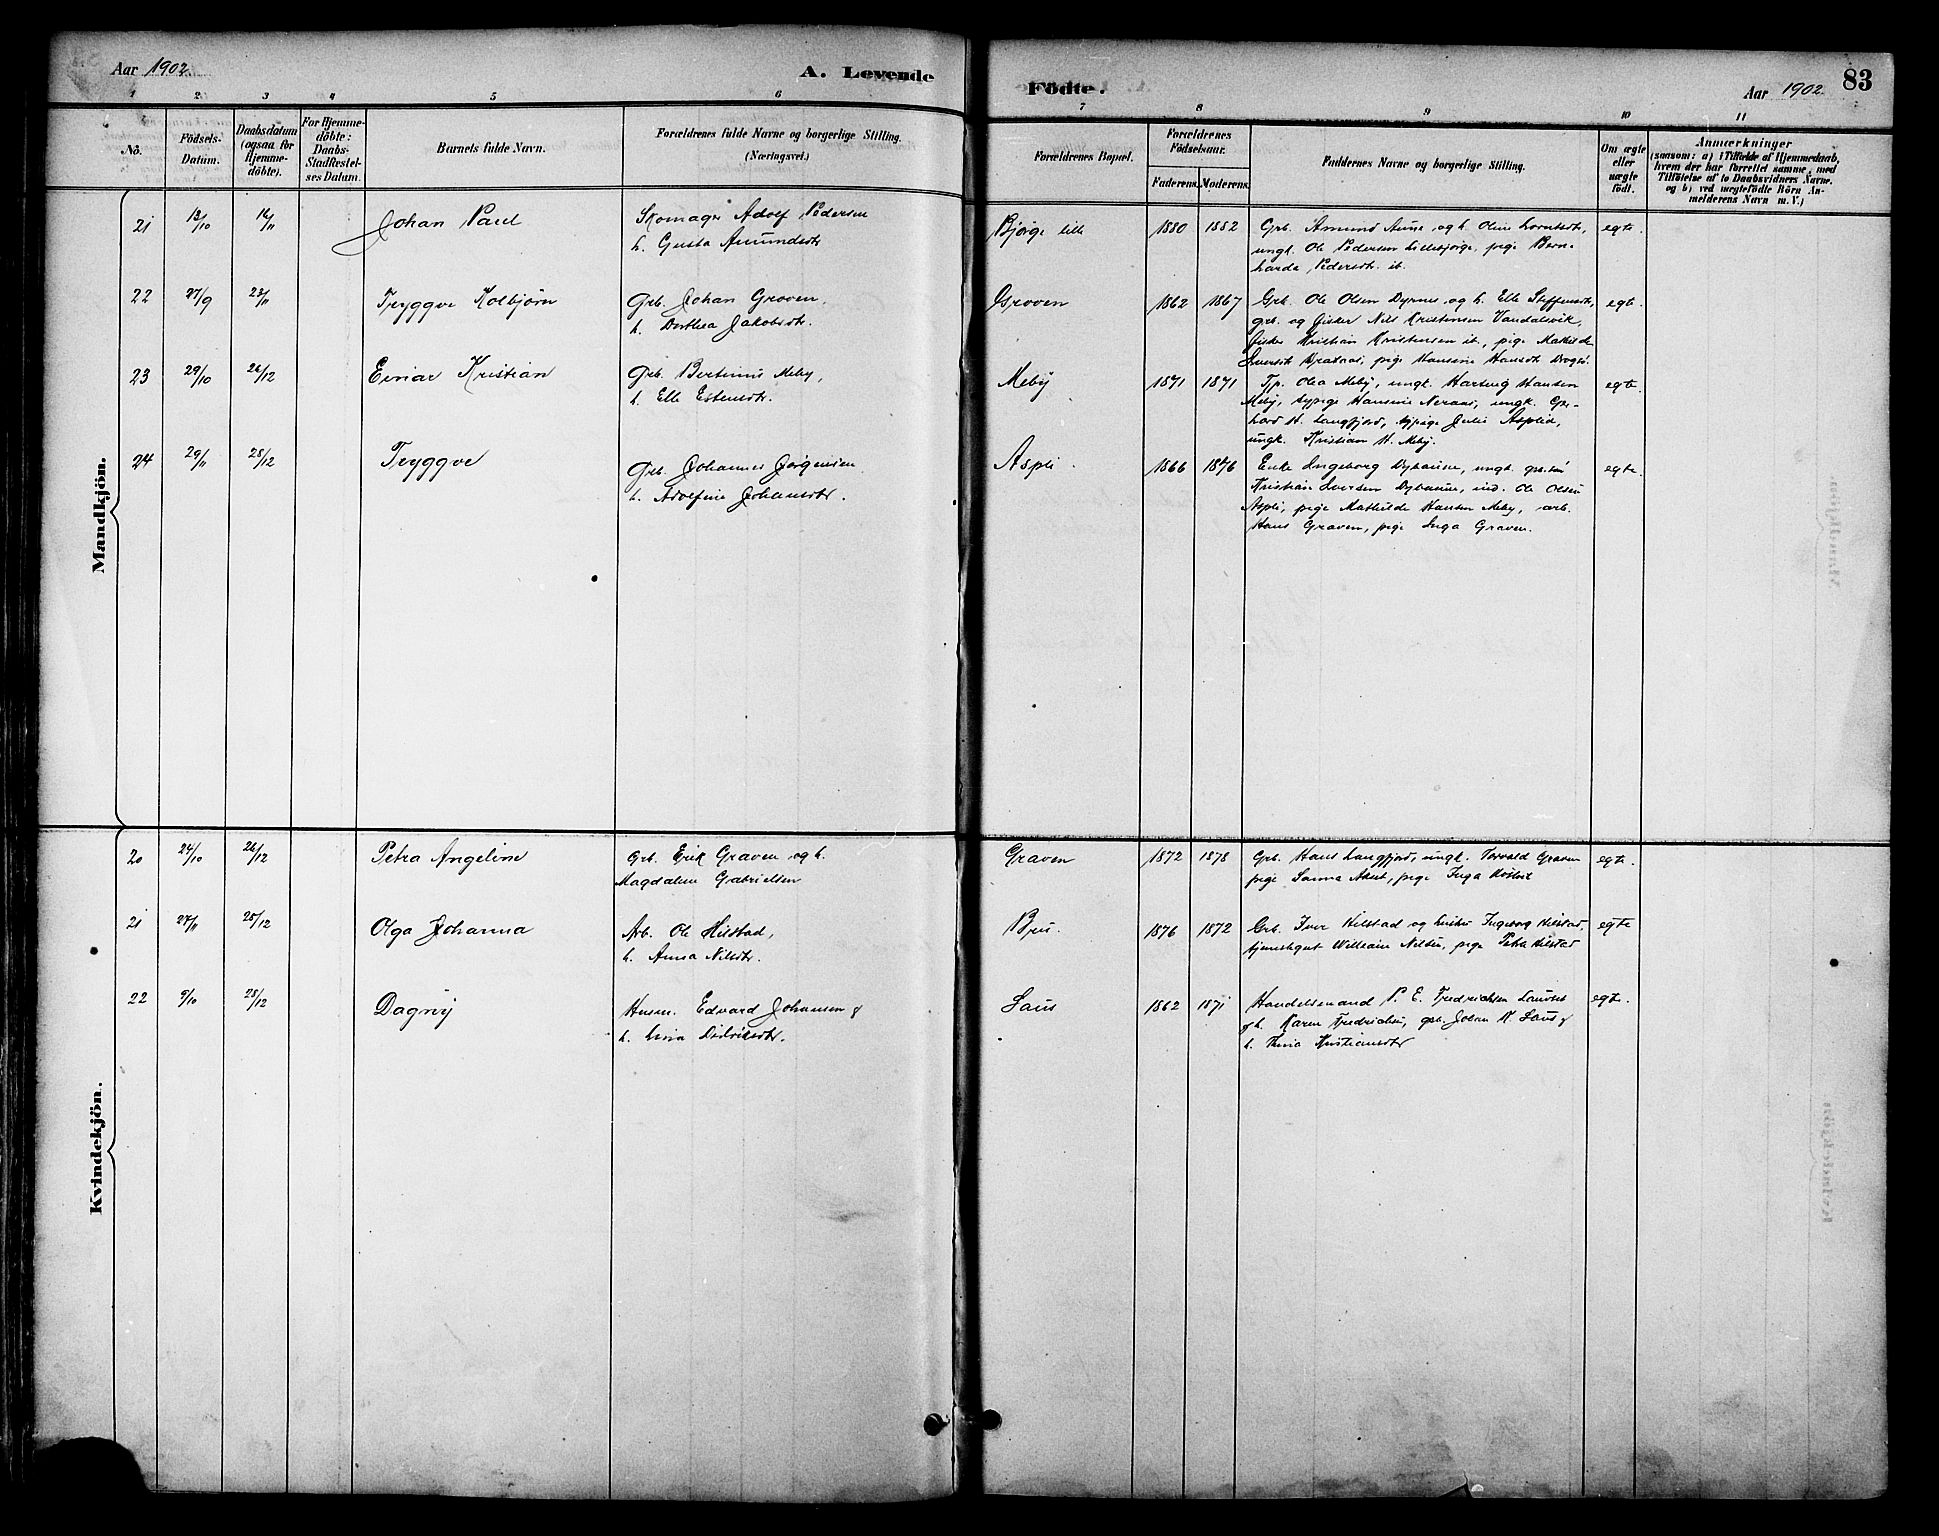 Aar 1902.
A. Levende
Födte.
Aar 1902. 83
1 2 3 4 5 6 7 8 9 10 11
No.
Födsels-
Datum.
Daabsdatum
(ogsaa for
Hjemme-
döbte).
For Hjemme-
döbte:
Daabs-
Stadfæstel-
ses Datum.
Barnets fulde Navn.
Forældrenes fulde Navne og borgerlige Stilling.
(Næringsvei.)
Forældrenes Bopæl.
Forældrenes
Födselsaar.
Faderens. Moderens.
Faddernes Navne og borgerlige Stilling.
Om ægte
eller
uægte
födt.
Anmærkninger
(saasom: a) i Tilfælde af Hjemmedaab,
hvem der har forrettet samme, med
Tilföielse af to Daabsvidners Navne,
og b) ved uægtefödte Börn An-
melderens Navn m. V.)
Mandkjön.
21 13/10 16/11 Johan Paul
Skomager Adolf Pedersen
h. Gusta Amundsdtr
Bjørge lille 1880 1882
Grb. Amund Aune og h. Oline Lorntsdtr,
ungk. Ole Pedersen Lillebjørge, pige Bern-
harda Pedersdtr. ib.
egte.
22 27/9 23/11 Tryggve Kolbjørn
Grb. Johan Groven,
h. Dorthea Jakobsdtr.
Groven 1862 1867
Grb. Ole Olsen Dyrnes og h. Elle Steffensdtr,
grb. og fisker Nils Kristensen Vandalsvik,
fisker Kristian Kristensen ib., pige Mathilde
pige Hansine Hansdtr
egte.
23 29/10 26/12 Einar Kristian
Grb. Bertinius Meby,
h. Elle Estensdtr.
Meby 1871 1871
Tjp. Olea Meby, ungk. Hartvig Hansen
Meby, sypige Hansine Neraas, ungk. Ger-
hard H. Langfjord, sypige Julie Asplid,
ungk. Kristian H. Meby.
egte.
24 29/11 28/12 Tryggve
Grb. Johannes Jørgensen
h. Adolfine Johansdtr.
Aspli. 1866 1876
Enke Ingeborg Dyhaune, ungk.
Kristian Iversen Dyhaune, ind. Ole Olsen
Aspli, pige Mathilde Hansen Meby, arb.
Hans Graven, pige Inga Graven.
egte.
Kvindekjön.
20 24/10 26/12 Petra Angeline
Grb. Erik Graven og h.
Magdalene Gabrielsen
Graven 1872 1878
Grb. Hans Langfjord, ungk. Torvald Graven
pige Sanna Akset, pige Inga
egte.
21 27/11 25/12 Olga Johanna
Arb. Ole Hilstad,
h. Anna Nilsdtr.
1876 1872
Grb. Iver Hilstad og hustru Ingeborg Hilstad,
tjenestegut William Nilsen, pige Petra Hilstad
egte
22 9/10 28/12 Dagny
Husm. Edvard Johansen &
h. Lina Didriksdtr.
Saus 1862 1871
Handelsmand P. E. Fredrichsen
& h. Karen Fredrichsen, grb. Johan N. Saus &
h. Kristiansdtr
egte.